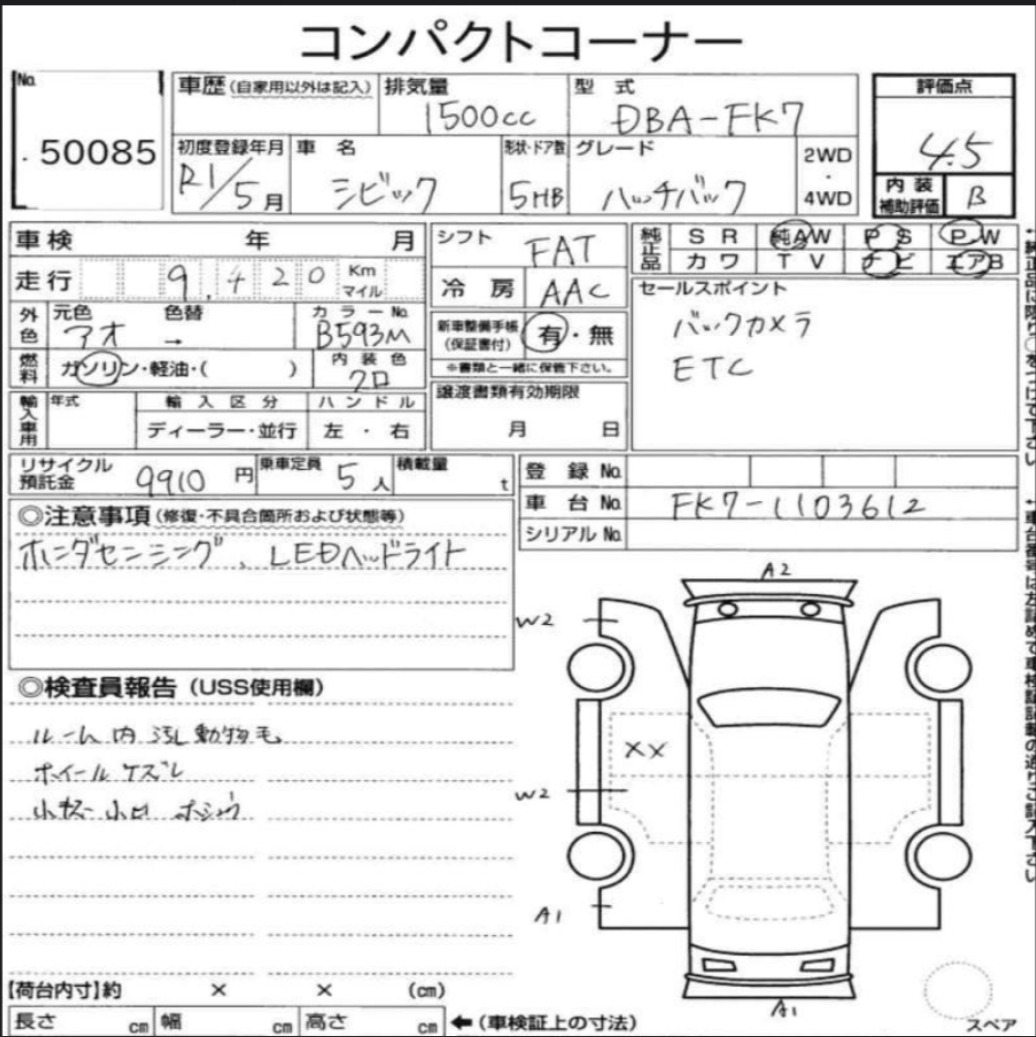 コンパクトコーナー
No.
50085
車歴(自家用以外は記入)
排気量
1500cc
型 式
DBA-FK7
評価点
4.5
内装
補助評価
B
初度登録年月
R1/5月
車 名
シビック
形状・ドア数
5HB
グレード
ハッチバック
2WD
・
4WD
車検 年 月
走行 9,420 Km
マイル
外色
元色
アオ
色替
→
カラーNo.
B593M
燃料
ガソリン・軽油・( )
内装色
クロ
輸入車用
年式
輸入区分
ディーラー・並行
ハンドル
左・右
シフト
FAT
冷 房
AAC
新車整備手帳
(保証書付)
有・無
※書類と一緒に保管下さい。
譲渡書類有効期限
月 日
純正品
SR 純AW PS PW
カワ TV ナビ エアB
セールスポイント
バックカメラ
ETC
リサイクル
預託金
9910 円
乗車定員
5人
積載量
t
登 録 No.
車 台 No. FK7-1103612
シリアル No.
◎注意事項(修復・不具合箇所および状態等)
ホンダセンシング、LEDヘッドライト
◎検査員報告(USS使用欄)
ルーム内汚し動物毛。
ホイールケズレ
小キズ 小凹 ホシュウ
A2
W2
XX
W2
A1
A1
スペア
【荷台内寸】約 × × (cm)
長さ cm 幅 cm 高さ cm ←(車検証上の寸法)